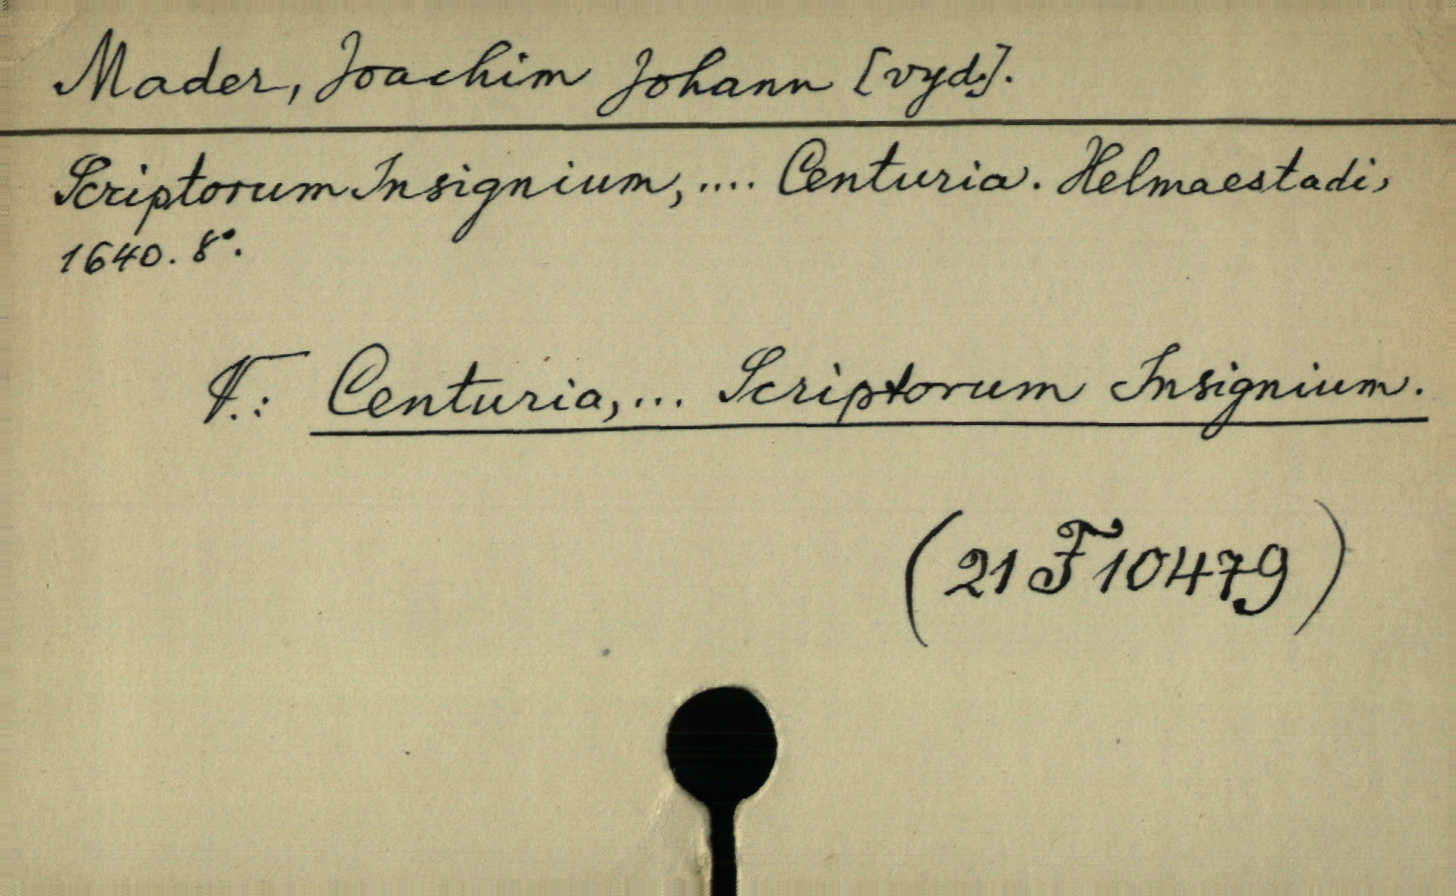 Mader, Joachim Johann [vyd.].
Scriptorum Insignium,.... Centuria. Helmaestadi,
1640. 8°.
V.: Centuria,... Scriptorum Insignium.
(21 F 10479)